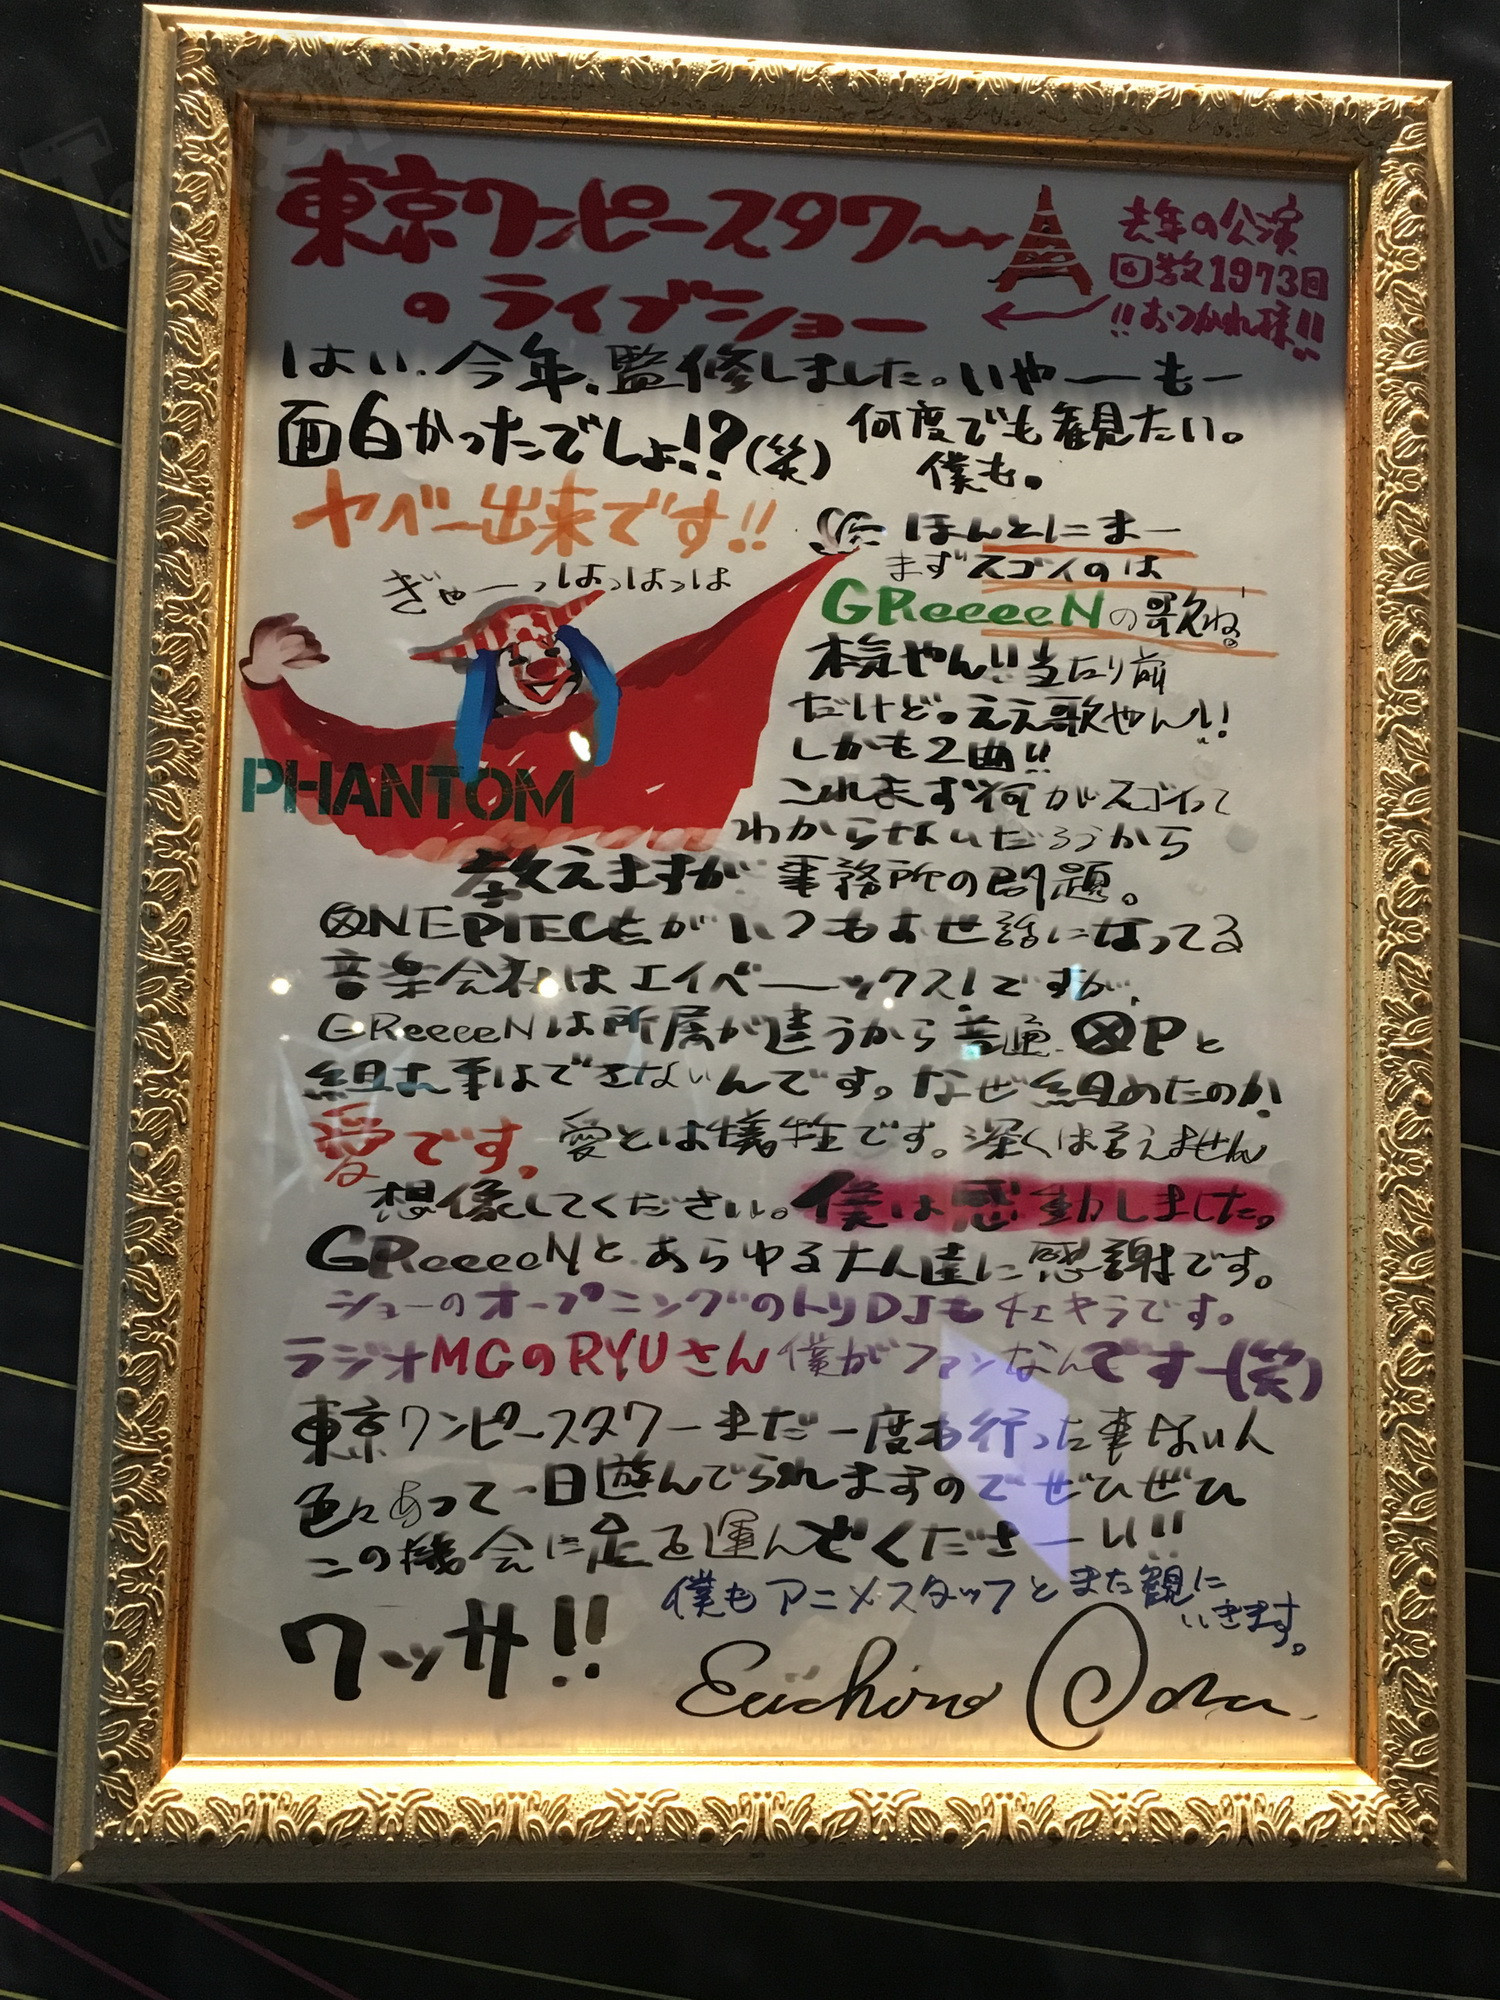 東京ワンピースタワー
のライブショー
去年の公演
回数1973回
!!おつかれ様!!
はい、今年、監修しました。いやーーもー
面白かったでしょ!?(笑)
何度でも観たい。
僕も。
ヤベー出来です!!
ぎゃーっはっはっは
PHANTOM
ほんとにまー
まずスゴイのは
GReeeeNの歌ね。
本気やん!!当たり前
だけど。ええ歌やん!!
しかも2曲!!
これまず何がスゴイって
わからないだろうから
教えますが事務所の問題。
ONE PIECEがいつもお世話になってる
音楽会社はエイベーックス!ですが、
GReeeeNは所属が違うから普通、OPと
組む事はできないんです。なぜ組めたのか
愛です。愛とは犠牲です。深くは言えません
想像してください。僕は感動しました。
GReeeeNと、あらゆる大人達に感謝です。
ショーのオープニングのトリDJもチェキラです。
ラジオMCのRYUさん僕がファンなんですー(笑)
東京ワンピースタワーまだ一度も行った事ない人
色々あって一日遊んでられますのでぜひぜひ
この機会に足を運んでくださーい!!
ワッサ!!
僕もアニメスタッフとまた観に
いきます。
Eiichiro Oda